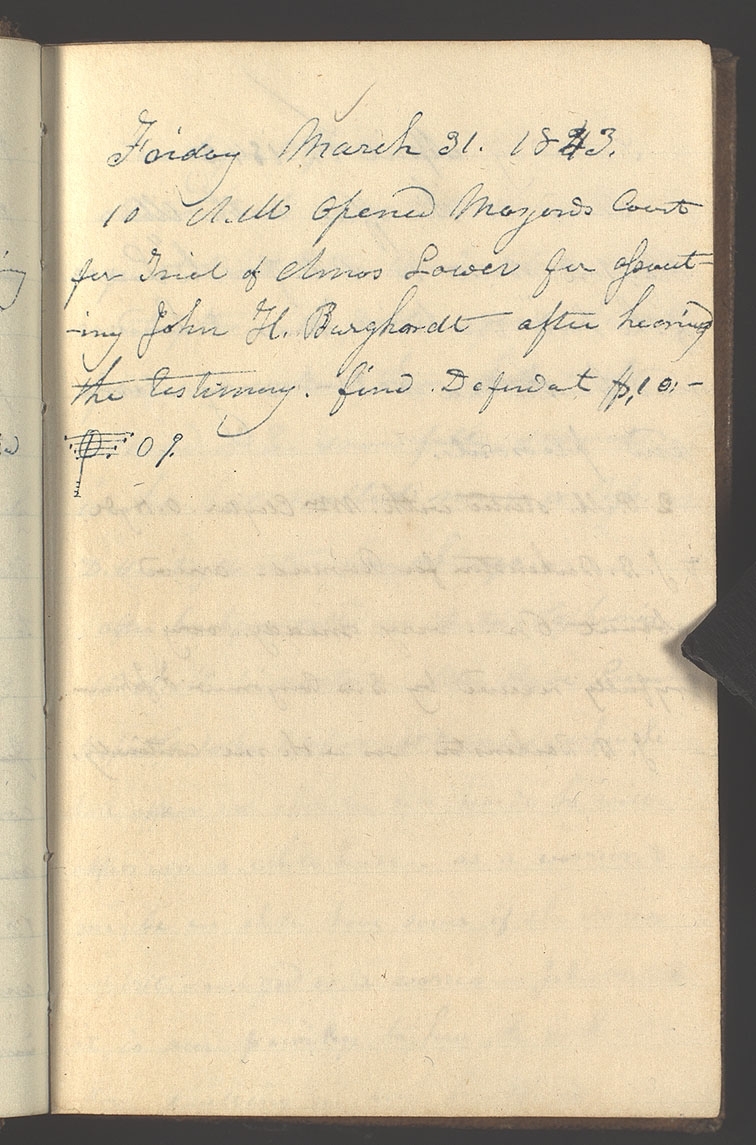 Friday March 31. 1843.
10 A.M Opened Mayors Court
for Trial of Amos Lower for assault-
-ing John H. Burghardt after hearing
the testimony. fined Defendat $,10.-